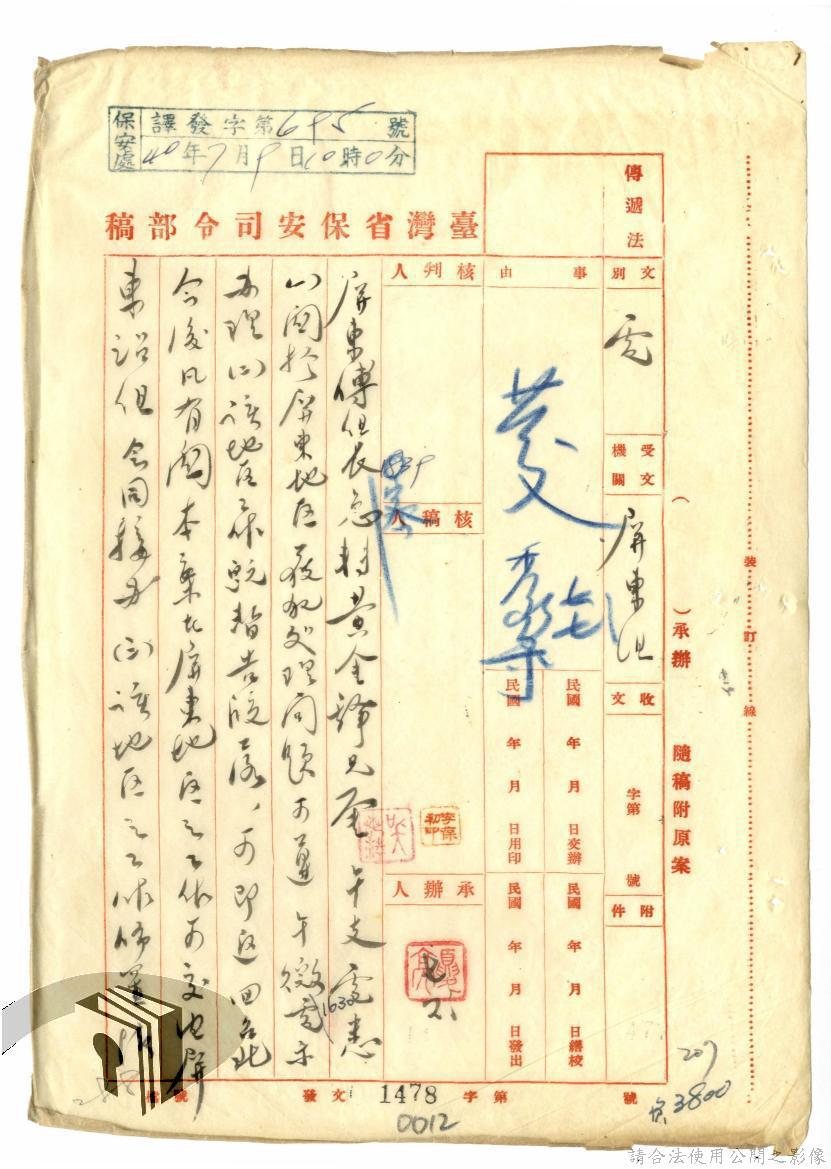 保安處
譯發字第695號
40年7月9日10時0分
臺灣省保安司令部稿
傳遞法
文別
電
受文機關
屏東組
收文
字第 號
附件
事由
民國 年 月 日交辦
民國 年 月 日繕校
民國 年 月 日用印
民國 年 月 日發出
核判人
核稿人
承辦人
屏東傅組長急轉黃金 兄 午支電悉
(一)關於屏東地區 處理問題可遵午微電示
1630
辦理(二)該地區工作既暫告段落,可即返回台北
今後凡有關本案在屏東地區之工作可交由屏
東組 會同接辦(三)該地區之工作佈置
( )承辦 隨稿附原案
裝訂線
發文 1478 字第 號
0012
207
3800
請合法使用公開之影像